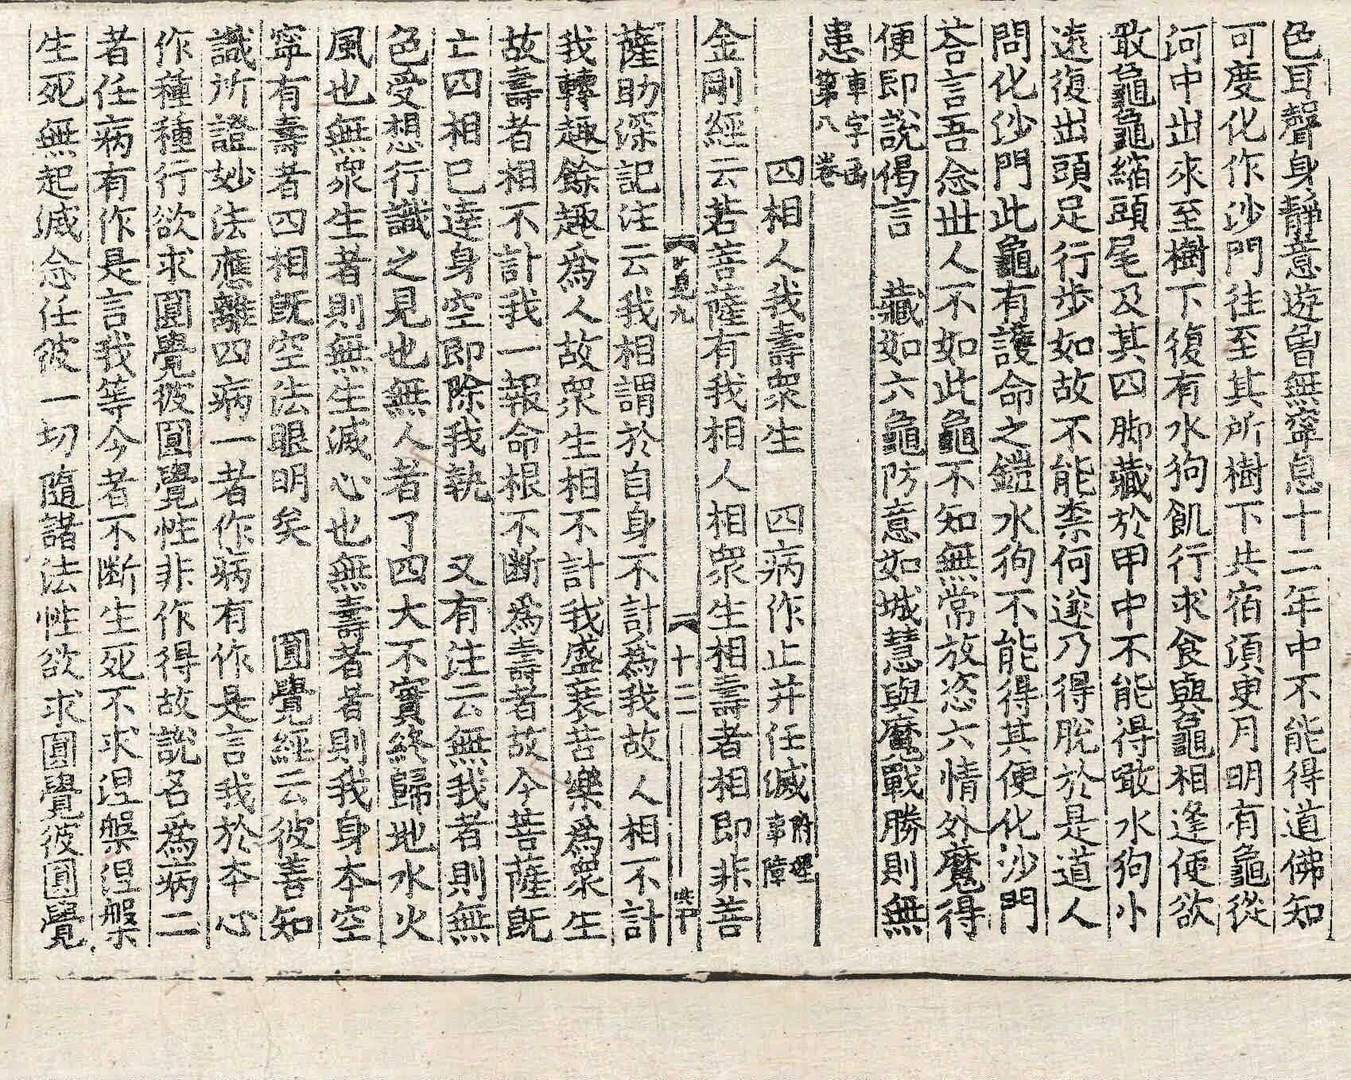 色耳聲身靜意遊曾無寧息十二年中不能得道佛知
可度化作沙門往至其所樹下共宿須臾月明有龜從
河中出來至樹下復有水狗飢行求食與龜相逢便欲
敢龜龜縮頭尾及其四脚藏於甲中不能得敢水狗小
遠復出頭足行步如故不能柰何遂乃得脫於是道人
問化沙門此龜有護命之鎧水狗不能得其便化沙門
荅言吾念世人不如此龜不知無常放恣六情外魔得
便即說偈言 藏如六龜防意如城慧與魔戰勝則無
患 車字函第八卷
四相人我壽衆生 四病作止并任滅
金剛經云若菩薩有我相人相衆生相壽者相即非菩
十二
薩助深記注云我相謂於自身不計爲我故人相不計
我轉趣餘趣爲人故衆生相不計我盛衰苦樂爲衆生
故壽者相不計我一報命根不断爲壽者故今菩薩旣
亡四相已達身空即除我執 又有注云無我者則無
色受想行識之見也無人者了四大不實終歸地水火
風也無衆生者則無生滅心也無壽者者則我身本空
寧有壽者四相旣空法眼明矣 圓覺經云彼善知
識所證妙法應離四病一者作病有作是言我於本心
作種種行欲求圓覺彼圓覺性非作得故說名爲病二
者任病有作是言我等今者不断生死不求涅槃涅槃
生死無起滅念任彼一切隨諸法性欲求圓覺彼圓覺